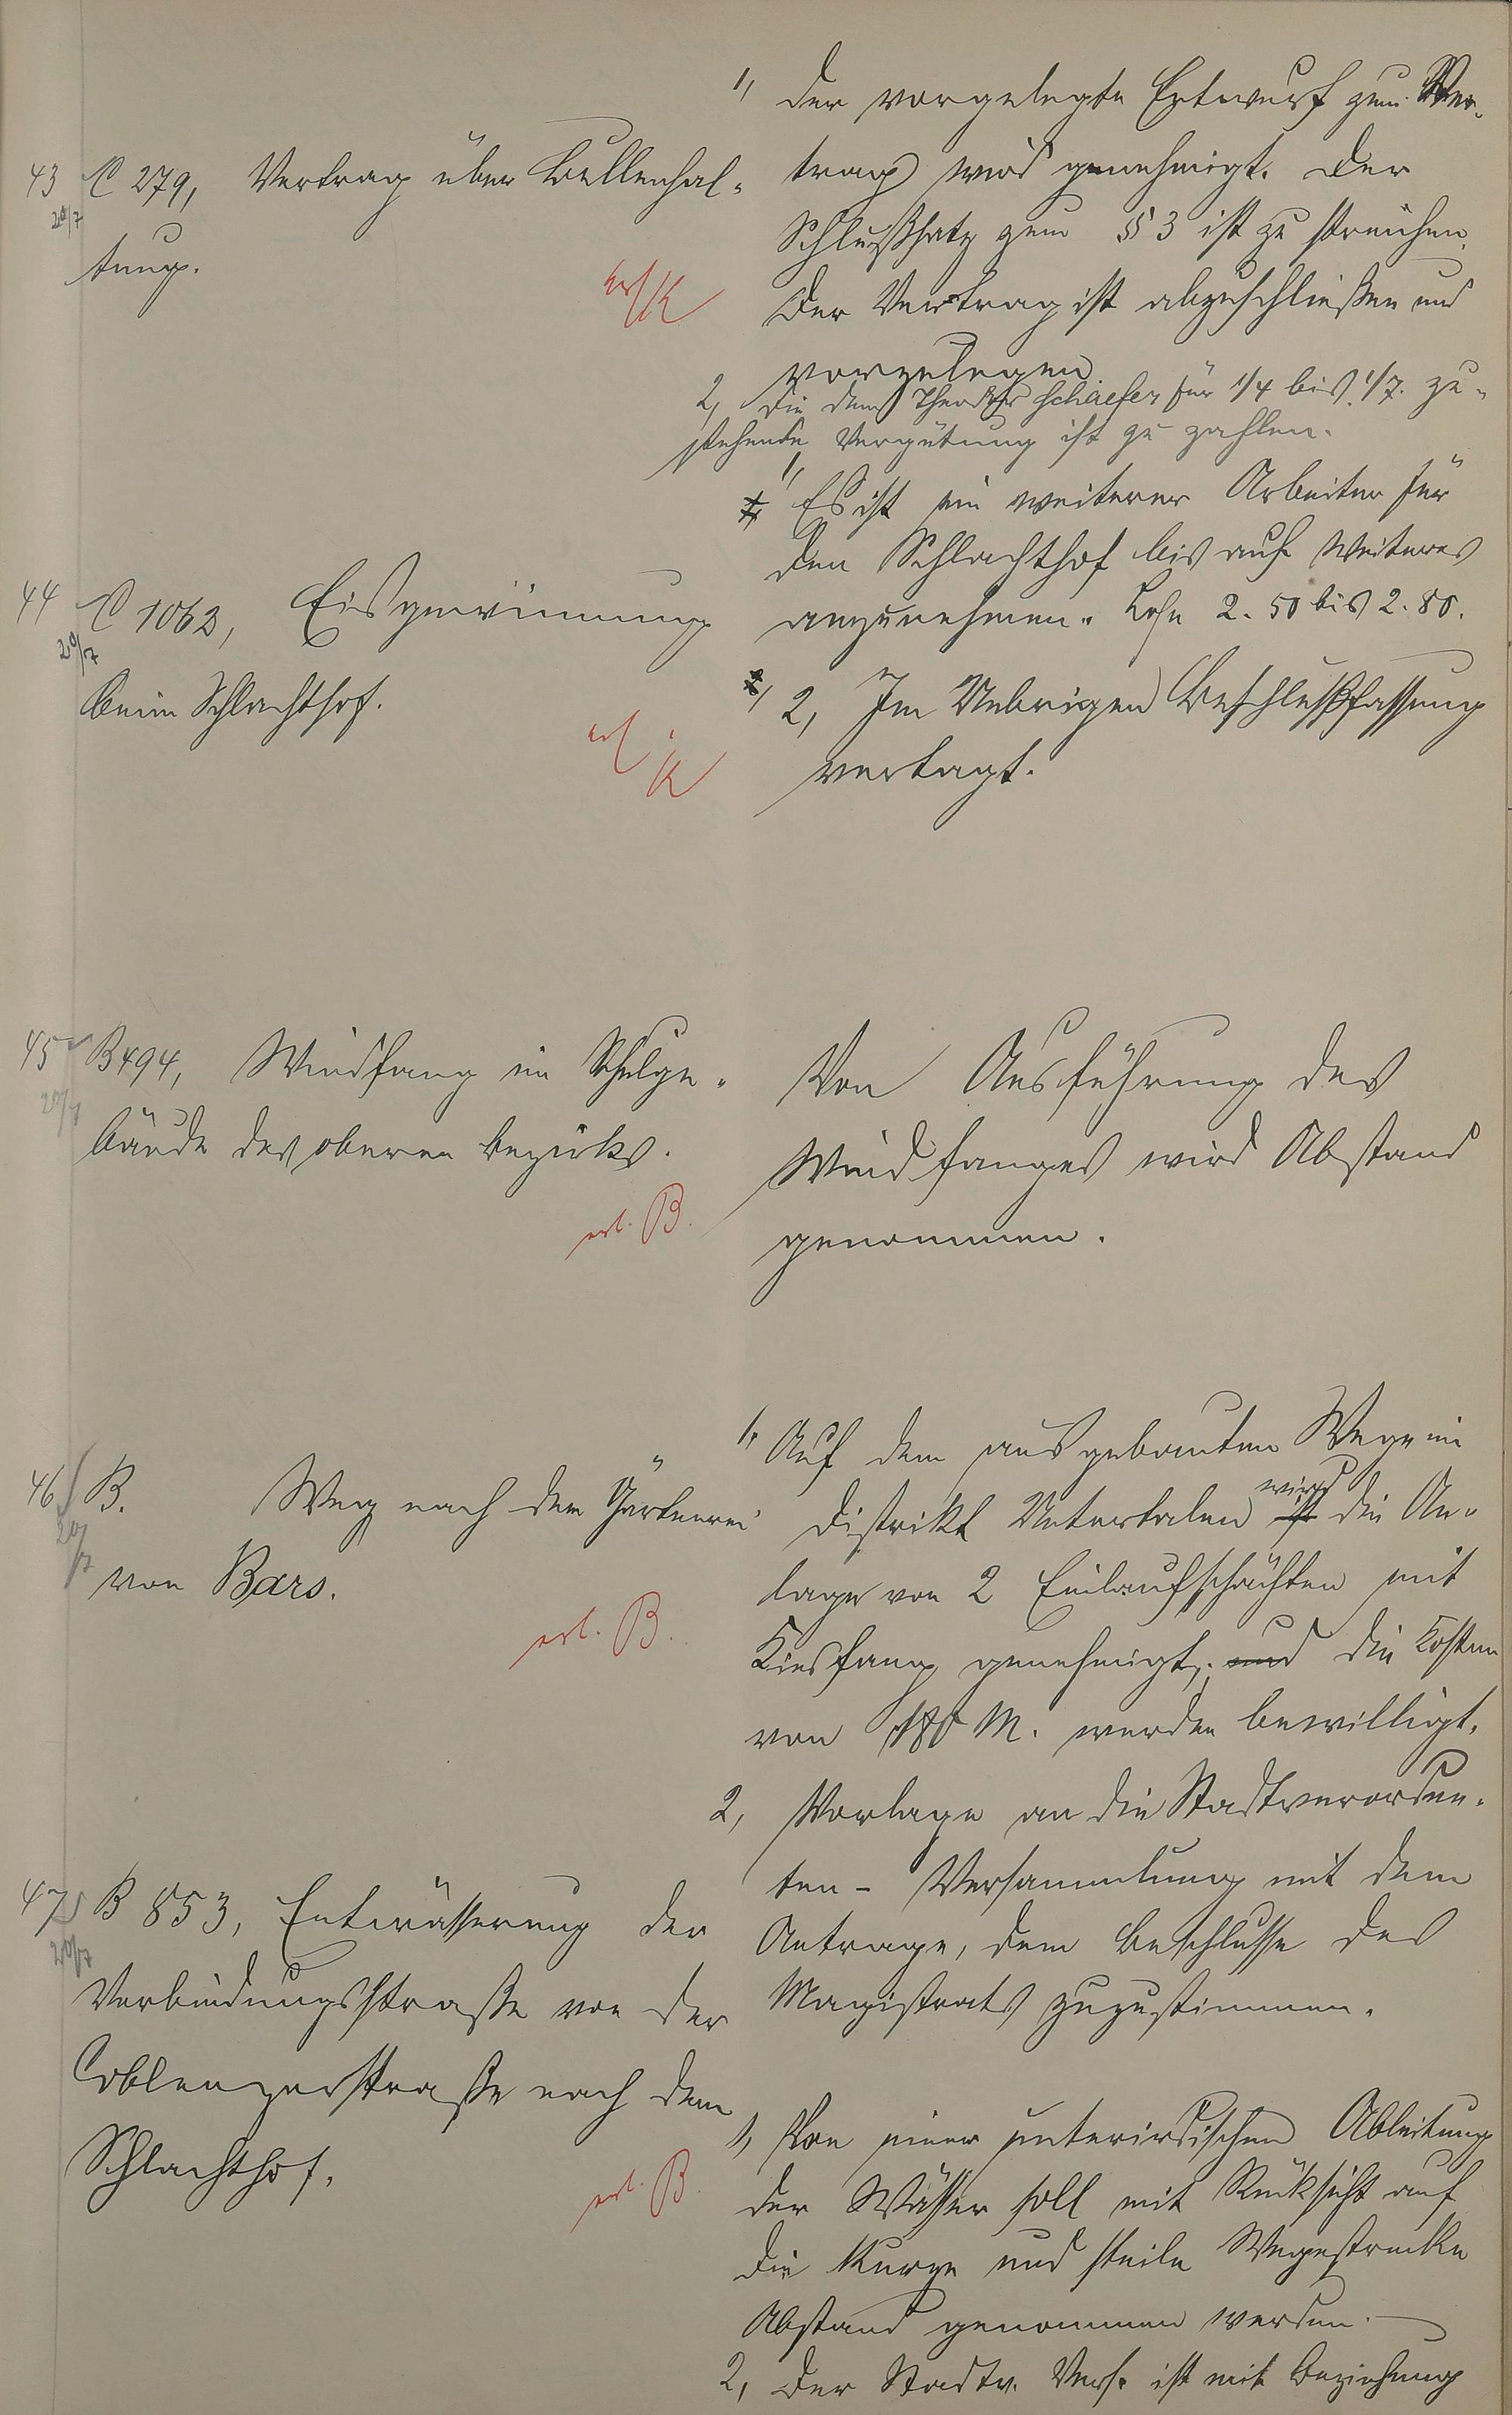 43 C 279, Vertrag über Bullenhal-
20/7
tung.
erl K
1, Der vorgelegte Entwurf zum Ver-
trag wird genehmigt. Der
Schlußsatz zum §§ 3 ist zu streichen.
Der Vertrag ist abzuschließen und
vorzulegen.
2, Die dem Theodor Schaefer für 1/4 bis 1/7. zu-
stehende Vergütung ist zu zahlen.
44 C 1062, Eisgewinnung
20/7
beim Schlachthof.
erl. K
1, Es ist ein weiterer Arbeiter für
den Schlachthof bis auf Weiteres
anzunehmen. Lohn 2.50 bis 2.80.
2, Im Uebrigen Beschlußfassung
vertagt.
45 B 494, Windfang im Schulge-
20/7
bäude des oberen Bezirks.
erl. B.
Von Ausführung des
Windfanges wird Abstand
genommen.
46 B. Weg nach der Gärtnerei
20/7
von Bars.
erl. B.
1, Auf dem ausgebauten Wege im
Distrikt Untertalen wird die An-
lage von 2 Einlaufschächten mit
Kiesfang genehmigt; und die Kosten
von 180 M. werden bewilligt.
2, Vorlage an die Stadtverordne-
ten-Versammlung mit dem
Antrage, dem Beschlusse des
Magistrats zuzustimmen.
47 B 853, Entwässerung der
20/7
Verbindungsstraße von der
Coblenzerstraße nach dem
Schlachthof.
erl. B.
1, Von einer unterirdischen Ableitung
der Wässer soll mit Rücksicht auf
die kurze und steile Wegestrecke
Abstand genommen werden.
2, Der Stadtv. Vers. ist mit Beziehung